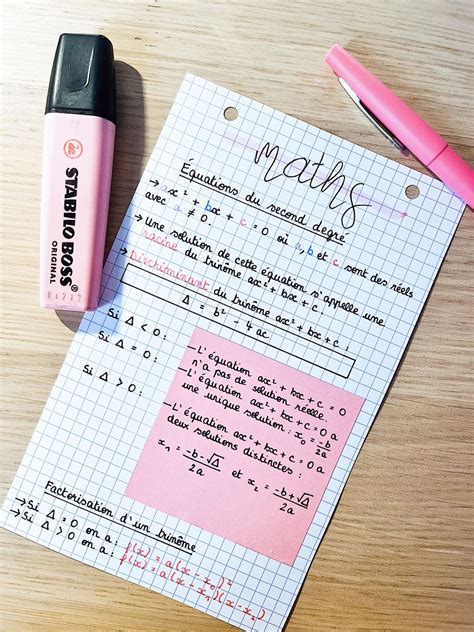 STABILO BOSS
ORIGINAL
maths
Équations du second degré
→ ax² + bx + c = 0 où a, b et c sont des réels
avec a ≠ 0.
→ Une solution de cette équation s'appelle une
racine du trinôme ax² + bx + c.
→ Discriminant du trinôme ax² + bx + c :
Δ = b² - 4ac
Si Δ < 0 :
- L'équation ax² + bx + c = 0
n'a pas de solution réelle.
Si Δ = 0 :
- L'équation ax² + bx + c = 0 a
une unique solution : x₀ = -b/2a
Si Δ > 0 :
- L'équation ax² + bx + c = 0 a
deux solutions distinctes :
x₁ = (-b-√Δ)/2a et x₂ = (-b+√Δ)/2a
Factorisation d'un trinôme
→ Si Δ = 0 on a : f(x) = a(x - x₀)²
→ Si Δ > 0 on a : f(x) = a(x - x₁)(x - x₂)